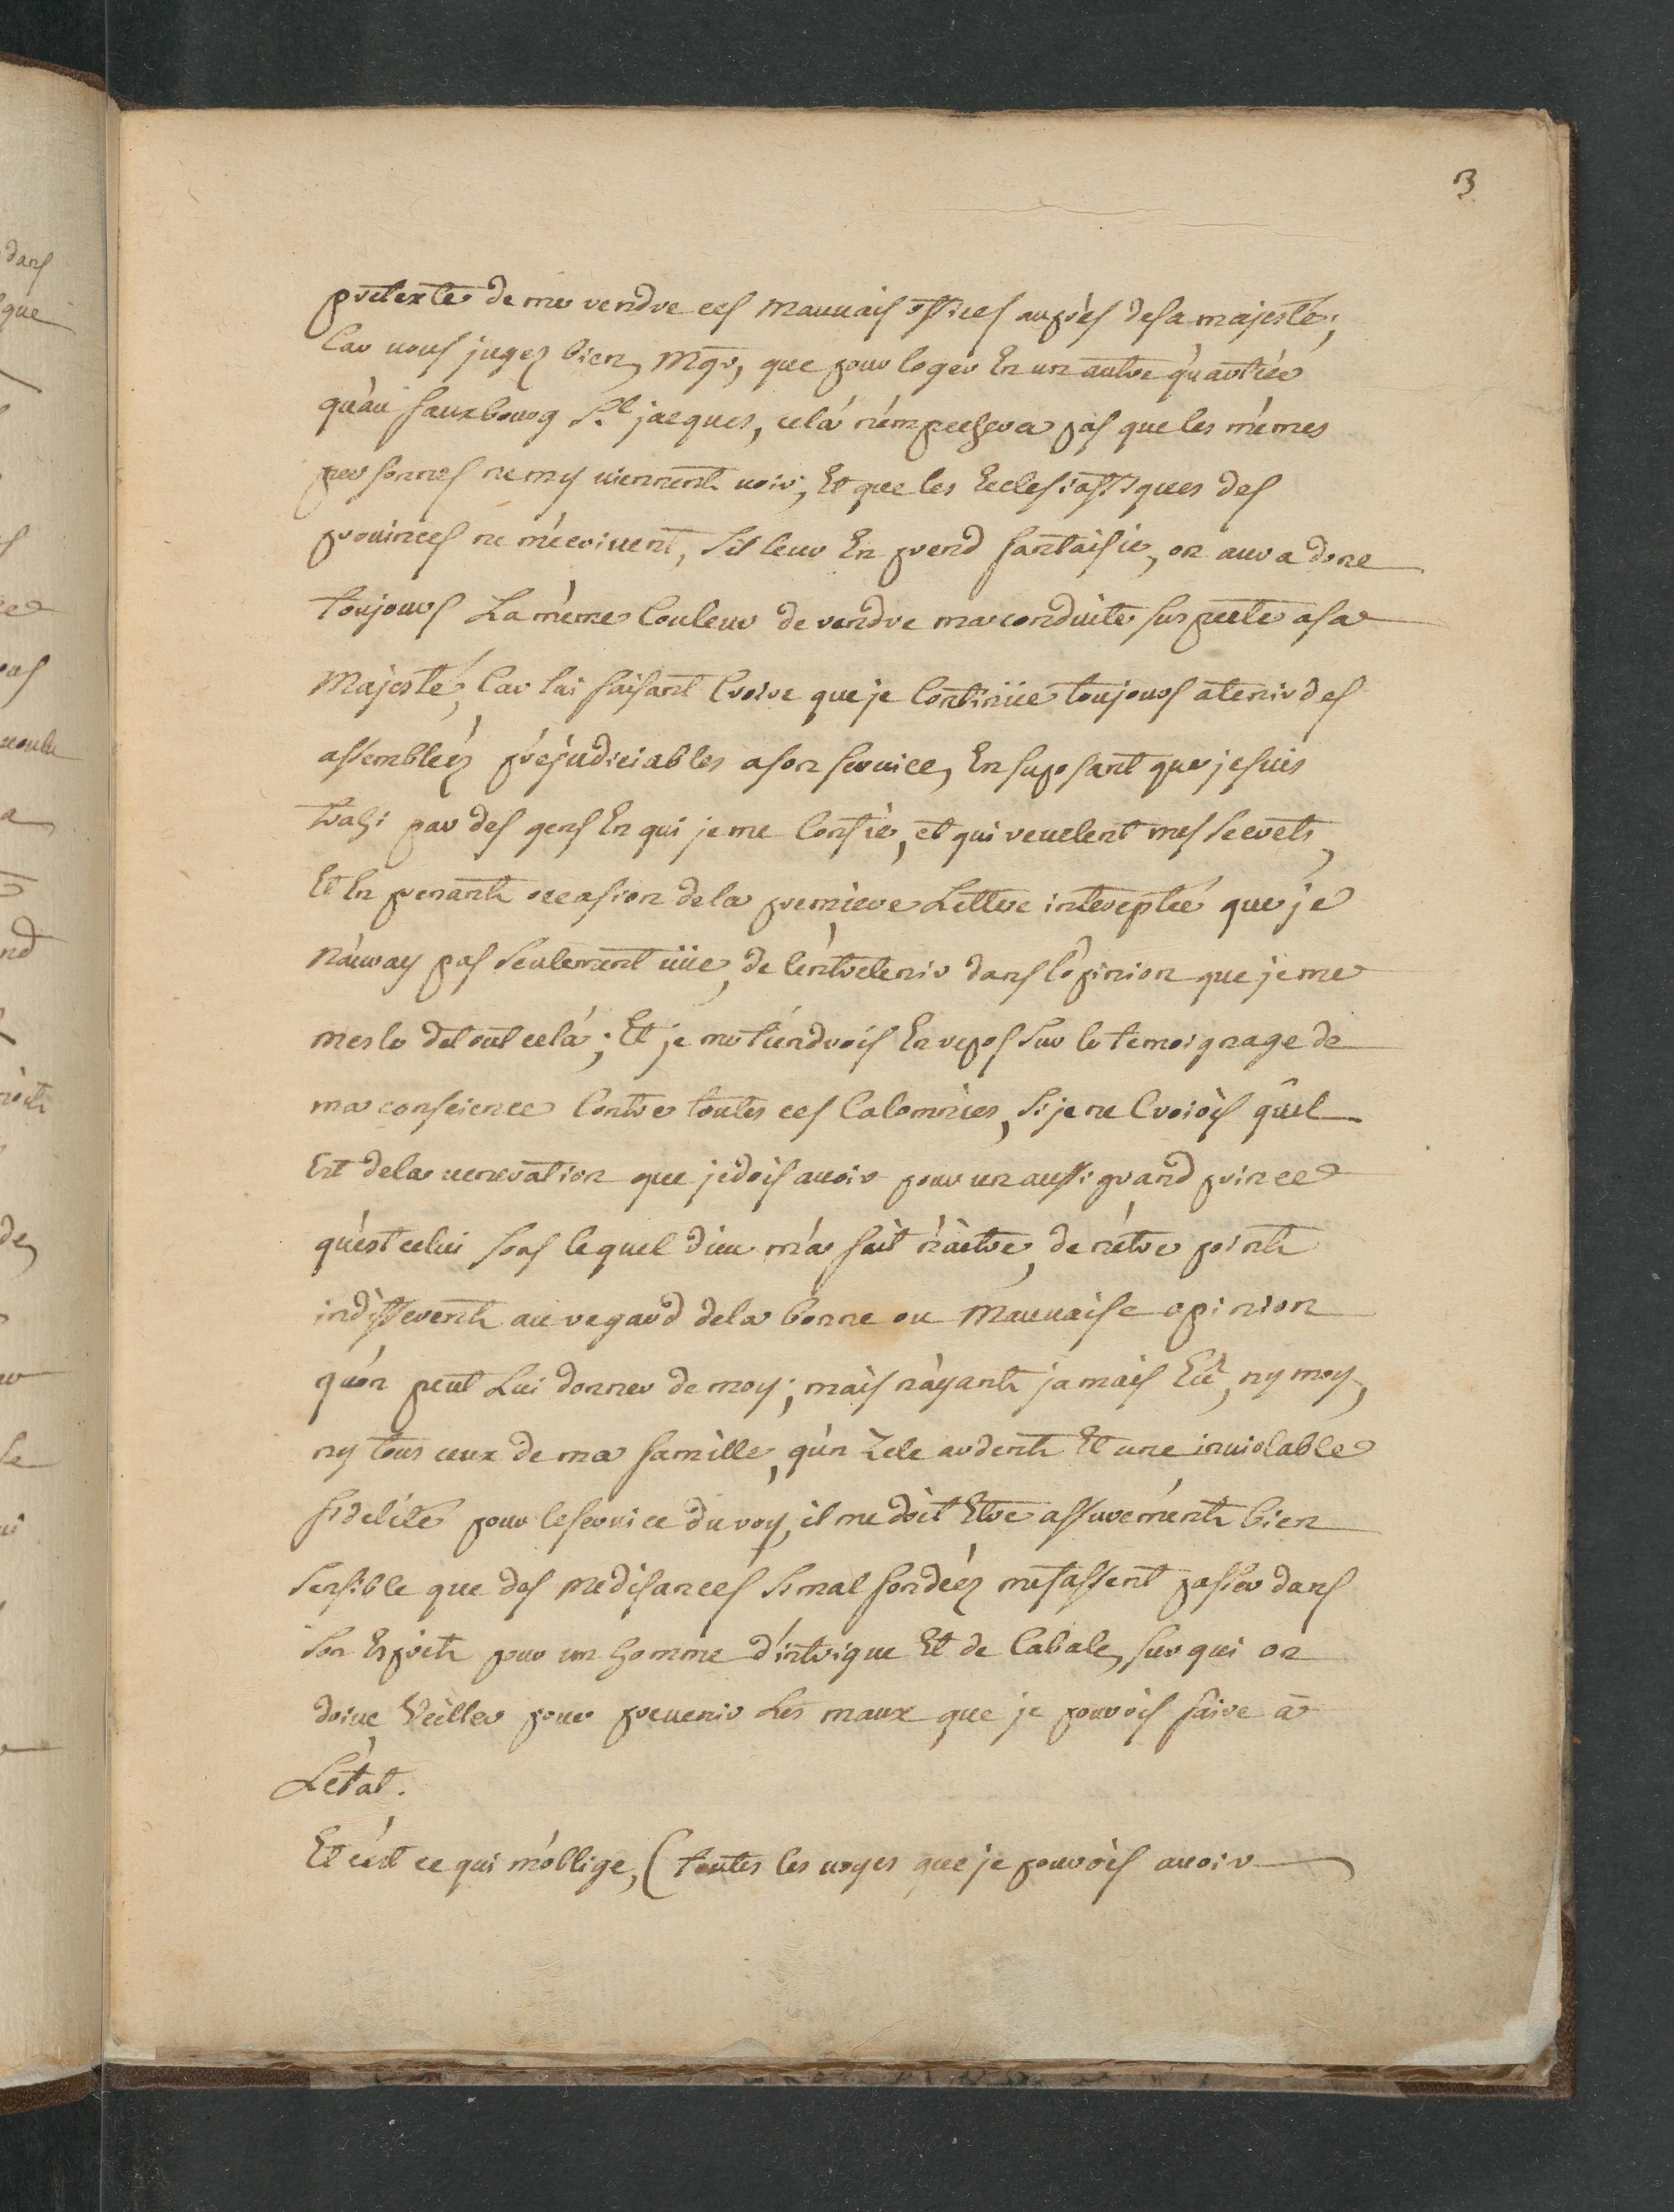 3
pretexte de me rendre ces mauvais offices auprès de sa majesté;
Car vous jugez bien, Mgr, que pour loger En un autre quartier
qu'au fauxbourg St. jacques, celà n'empechera pas que les mémes
personnes ne m'y viennent voir; Et que les Ecclesiastiques des
provinces ne m'ecrivent, s'il leur En prend fantaisie, on aura donc
toujours La méme Couleur de rendre ma conduite suspecte a sa
Majesté, Car lui faisant Croire que je Continüe toujours a tenir des
assembleéz préjudiciables a son service, En suposant que je suis
trahi par des gens En qui je me Confie, et qui revelent mes secrets,
Et En prenant occasion de la premiere Lettre interceptée que je
n'auray pas seulement vüe, de l'entretenir dans l'opinion que je me
mesle de tout celà; Et je me tiendrois En repos sur le temoignage de
ma conscience Contre toutes ces Calomnies, si je ne Croiois qu'il
Est de la veneration que je dois avoir pour un aussi grand prince
qu'est celui sous lequel dieu m'a fait naître, de n'étre point
indifferent au regard de la bonne ou Mauvaise opinion
qu'on peut Lui donner de moy; mais n'ayant jamais Eû, ny moy,
ny tous ceux de ma famille, qu'un Zele ardent Et une inviolable
fidelité pour le service du roy, il me doit Etre assurement bien
sensible que des medisances si mal fondéez me fassent passer dans
son Esprit pour un homme d'intrigue Et de Cabale, sur qui on
doive Veiller pour prevenir Les maux que je pourois faire a
L'état.
Et c'est ce qui m'oblige, (toutes les voyes que je pourois avoir